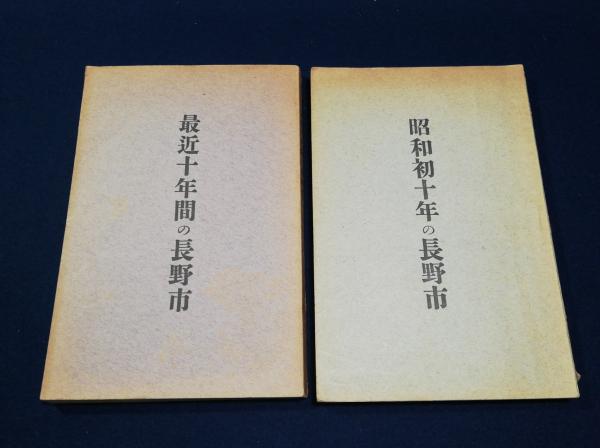 最近十年間の長野市
昭和初十年の長野市